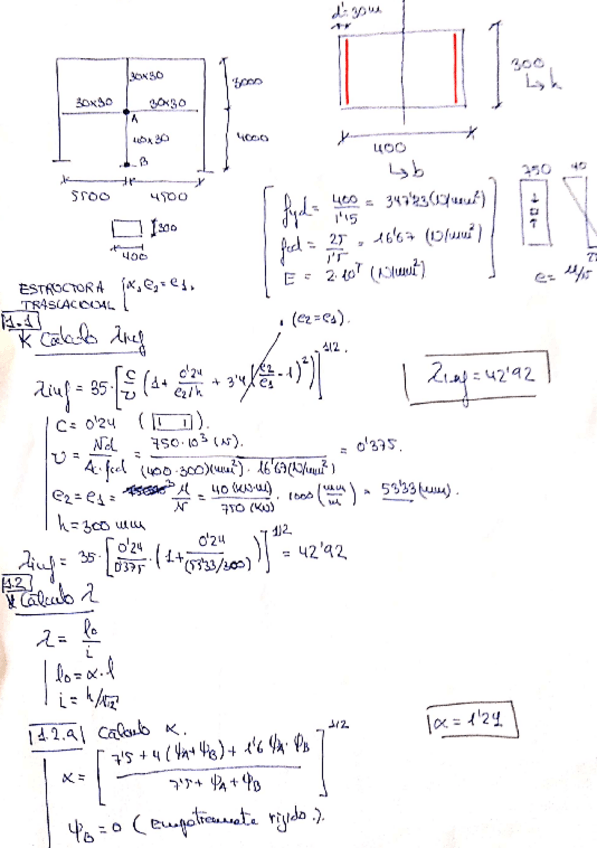 d'=30mm
30x30
3000
30x30
30x30
A
40x30
4000
B
5500
4500
300
400
300
↳h
400
↳b
fyd = 400/1'15 = 347'23 (N/mm²)
fcd = 25/1'5 = 16'67 (N/mm²)
E = 2·10⁵ (N/mm²)
750
40
ESTRUCTURA
TRASLACIONAL
{α, e2=e1.
1.1
* Cálculo λinf
(e2=e1).
λinf = 35·[C/ν (1+ 0'24/(e2/h) + 3'4(e2/e1 -1)²)]^1/2
λinf = 42'92
C= 0'24
ν = Nd/(Ac·fcd) = 750·10³ (N)./((400·300)(mm²)·16'67(N/mm²)) = 0'375.
e2=e1 = M/N = 40(kN·m)/750(kN) · 1000 (mm/m) = 53'33 (mm).
h=300 mm
λinf = 35·[0'24/0'375 · (1+ 0'24/(53'33/300))]^1/2 = 42'92
1.2
* Cálculo λ
λ = l0/i
l0 = α·l
i = h/√12
1.2.a Cálculo α.
α = 1'21
α = [(7'5+4(ΨA+ΨB)+1'6 ΨA·ΨB)/(7'5+ΨA+ΨB)]^1/2
ΨB=0 (empotramiento rígido).